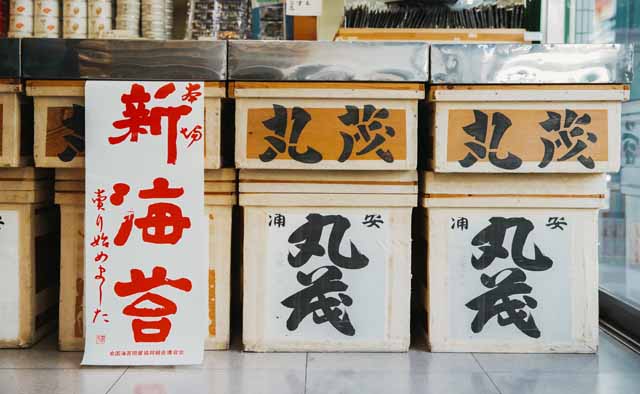 本場
新海苔
賣り始めました
全国海苔問屋協同組合連合会
丸茂
丸茂
浦 安
丸茂
浦 安
丸茂